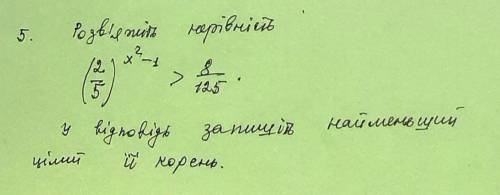 5. Розв'яжіть нерівність
(2/5)^(x²-1) > 8/125.
У відповідь запишіть найменьший
цілий її корень.